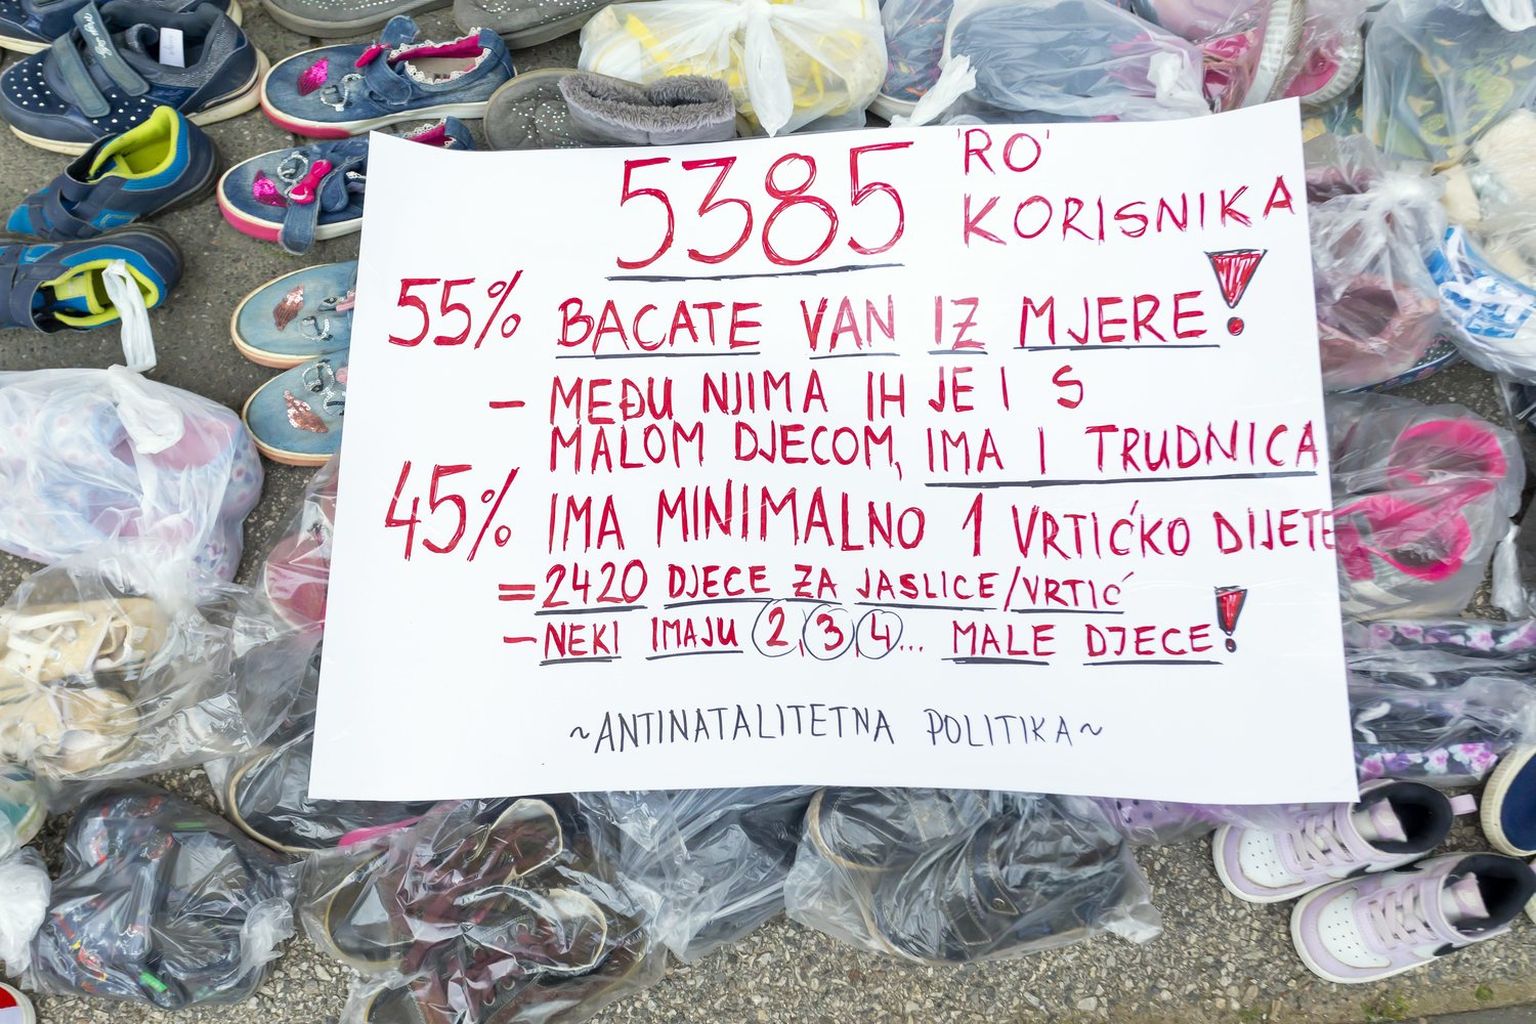 5385 'RO'
KORISNIKA
55% BACATE VAN IZ MJERE!
- MEĐU NJIMA IH JE I S
MALOM DJECOM, IMA I TRUDNICA
45% IMA MINIMALNO 1 VRTIĆKO DIJETE
= 2420 DJECE ZA JASLICE/VRTIĆ
- NEKI IMAJU 2, 3, 4... MALE DJECE!
~ANTINATALITETNA POLITIKA~